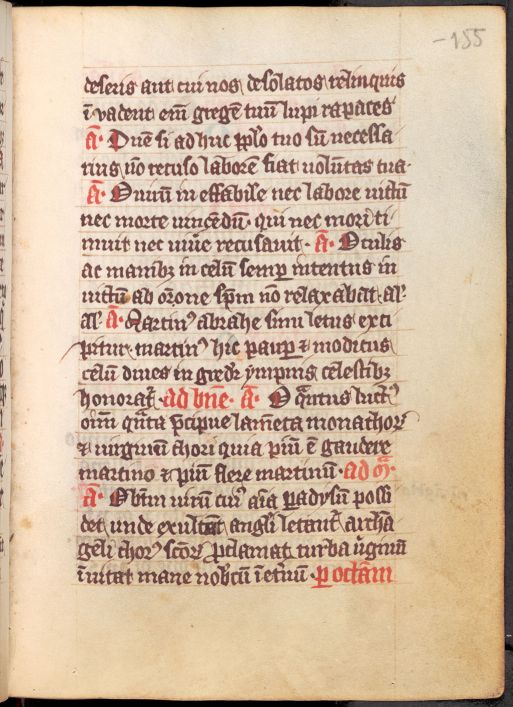 -155
deseris aut cui nos desolatos relinquis
ī vadent eni͞ gregē tuū lupi rapaces
A͞· Dn͞e si ad huc pp̄lo tuo su͞ necessa
rius no͞ recuso laborē fiat uolu͞tas tua·
A͞· O uiru͞ in effabile nec labore uictu͞
nec morte uincendu͞· qui nec mori ti
muit nec uiu͞e recusauit· A͞· Oculis
ac manibꝫ in celu͞ semꝑ intentus in
uictu͞ ab or͞one sp͞m no͞ relaxabat al͞·
al͞· A͞· Martinꝰ abrahe sinu letus exci
pitur· martinꝰ hic pauꝑ ⁊ modicus
celu͞ diues in gredit᷑ ympnis celestibꝫ
honorat᷑· ad bn͞e· A͞· O quantus luctꝰ
om͞i͞ qu͞ta p͛cipue lame͞ta monachoꝝ
⁊ uirginu͞ chori quia piu͞ ē gaudere
martino ⁊ piu͞ flere martinu͞· ad m͞·
A͞· O bt͞m uiru͞ cuiꝰ ai͞a padysu͞ possi
det unde exultant angl͞i letant᷑ archa͞
geli chorꝰ sc͞oꝝ ꝓclamat turba u͛ginu͞
i͞uitat mane nob͛cu͞ i͞et͛nu͞· ꝑ octa͞m